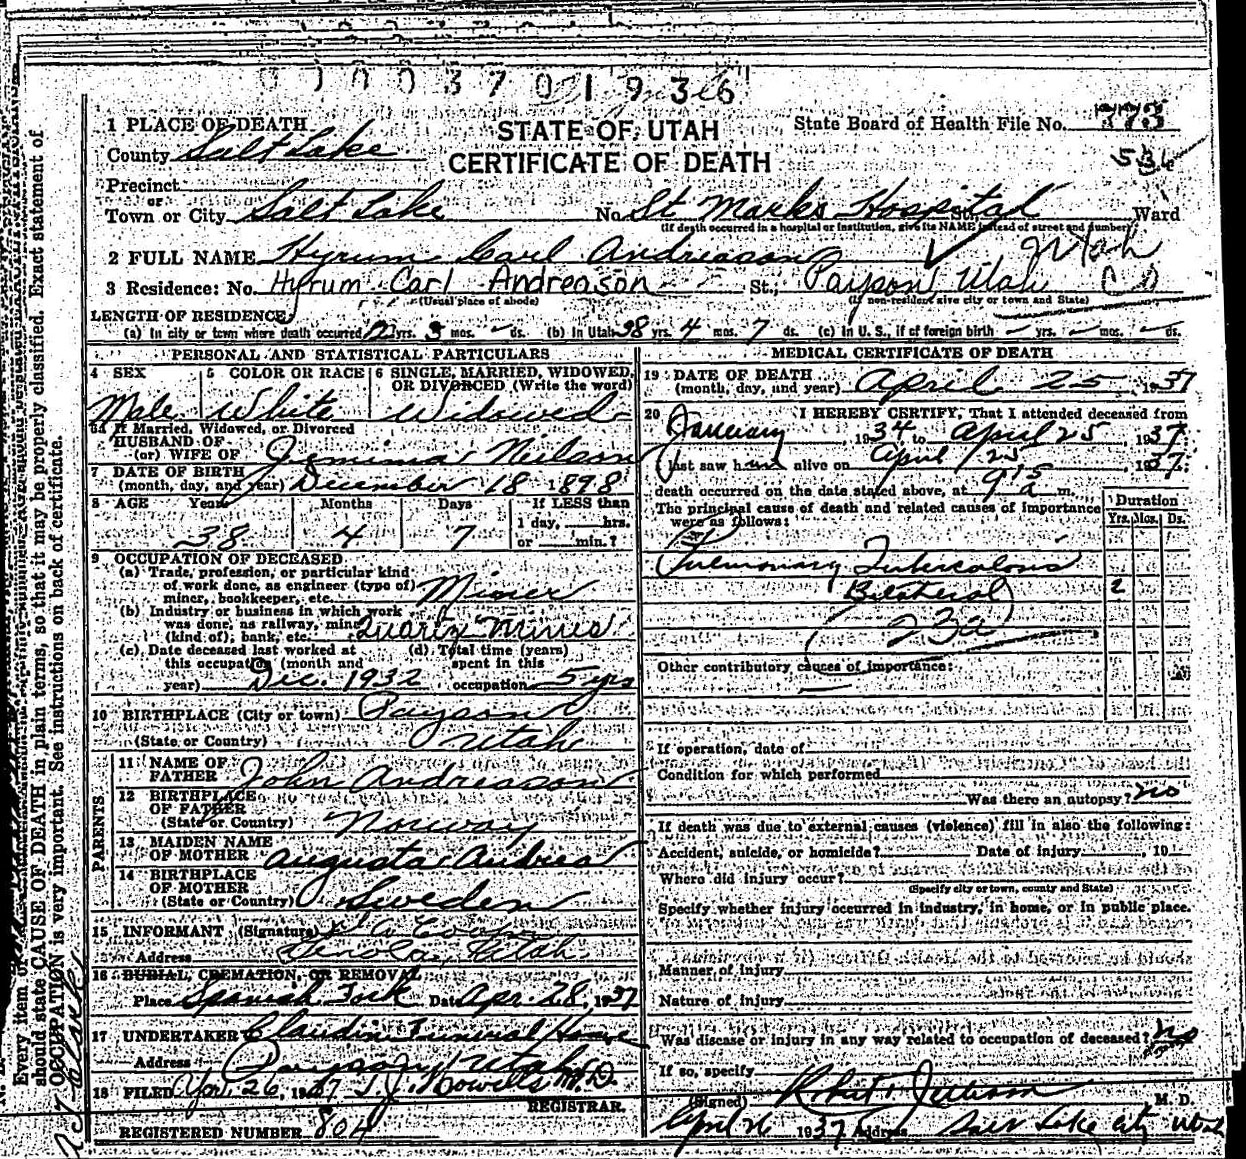 STATE OF UTAH
CERTIFICATE OF DEATH
State Board of Health File No. 773
536
1 PLACE OF DEATH
County Salt Lake
Precinct
or
Town or City Salt Lake No. St Marks Hospital St., Ward
(If death occurred in a hospital or institution, give its NAME instead of street and number)
2 FULL NAME Hyrum Carl Andreason
Utah
3 Residence: No. Hyrum Carl Andreason St., Payson Utah Co
(Usual place of abode) (If non-resident give city or town and State)
LENGTH OF RESIDENCE:
(a) In city or town where death occurred 12 yrs. 3 mos. - ds. (b) In Utah 38 yrs. 4 mos. 7 ds. (c) In U. S., if of foreign birth - yrs. - mos. - ds.
PERSONAL AND STATISTICAL PARTICULARS
4 SEX
Male
5 COLOR OR RACE
White
6 SINGLE, MARRIED, WIDOWED, OR DIVORCED (Write the word)
Widowed
6a If Married, Widowed, or Divorced
HUSBAND OF
(or) WIFE OF Jemima Neilson
7 DATE OF BIRTH
(month, day, and year) December 18 1898
8 AGE Years Months Days If LESS than
1 day, hrs.
38 4 7 or min.?
9 OCCUPATION OF DECEASED
(a) Trade, profession, or particular kind
of work done, as engineer (type of)
miner, bookkeeper, etc. Miner
(b) Industry or business in which work
was done, as railway, mine
(kind of), bank, etc. Quartz Mines
(c) Date deceased last worked at
this occupation (month and
year) Dec. 1932
(d) Total time (years)
spent in this
occupation 5 yrs
10 BIRTHPLACE (City or town) Payson
(State or Country) Utah
PARENTS
11 NAME OF
FATHER John Andreason
12 BIRTHPLACE
OF FATHER
(State or Country) Norway
13 MAIDEN NAME
OF MOTHER Augusta Andrea
14 BIRTHPLACE
OF MOTHER
(State or Country) Sweden
15 INFORMANT (Signature)
Address Genola, Utah
16 BURIAL, CREMATION, OR REMOVAL
Place Spanish Fork Date Apr. 28, 1937
17 UNDERTAKER Claudin Funeral Home
Address Payson, Utah
18 FILED Apr. 26, 1937 T. J. Howells M.D.
REGISTRAR.
REGISTERED NUMBER 804
MEDICAL CERTIFICATE OF DEATH
19 DATE OF DEATH
(month, day, and year) April 25 1937
20 I HEREBY CERTIFY, That I attended deceased from
January, 1934 to April 25, 1937.
I last saw him alive on April 25, 1937;
death occurred on the date stated above, at 9 15 a m.
The principal cause of death and related causes of importance
were as follows:
Duration
Yrs. Mos. Ds.
Pulmonary Tuberculosis
Bilateral 2
23a
Other contributory causes of importance:
If operation, date of
Condition for which performed
Was there an autopsy? no
If death was due to external causes (violence) fill in also the following:
Accident, suicide, or homicide? Date of injury, 19
Where did injury occur?
(Specify city or town, county and State)
Specify whether injury occurred in industry, in home, or in public place.
Manner of injury
Nature of injury
Was disease or injury in any way related to occupation of deceased? no
If so, specify
(Signed) M. D.
April 26 1937 Address Salt Lake City Utah
should state CAUSE OF DEATH in plain terms, so that it may be properly classified. Exact statement of
OCCUPATION is very important. See instructions on back of certificate.